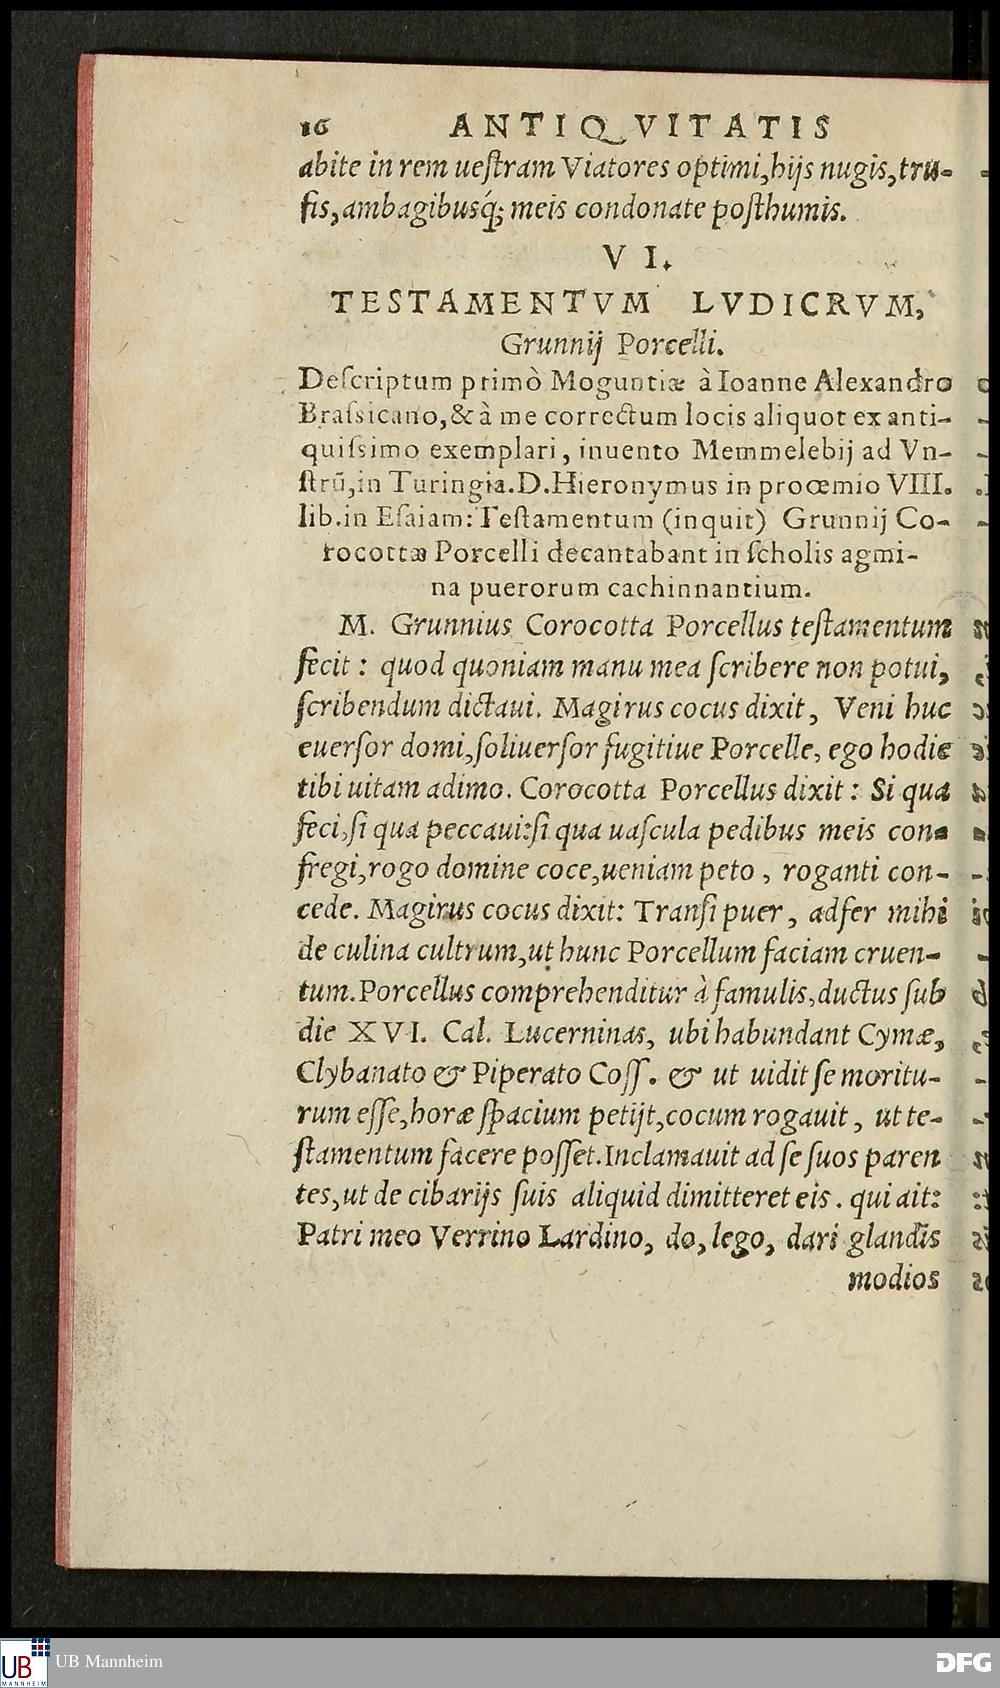 16 ANTIQVITATIS
abite in rem ueſtram Viatores optimi,hijs nugis,tru-
fis,ambagibusq́; meis condonate poſthumis.
VI.
TESTAMENTVM LVDICRVM,
Grunnij Porcelli.
Deſcriptum primò Moguntiæ à Ioanne Alexandro
Braſsicano,& à me correctum locis aliquot ex anti-
quiſsimo exemplari, inuento Memmelebij ad Vn-
ſtrũ,in Turingia.D.Hieronymus in proœmio VIII.
lib.in Eſaiam: Teſtamentum (inquit) Grunnij Co-
rocottæ Porcelli decantabant in ſcholis agmi-
na puerorum cachinnantium.
M. Grunnius Corocotta Porcellus teſtamentum
fecit : quod quoniam manu mea ſcribere non potui,
ſcribendum dictaui. Magirus cocus dixit, Veni huc
euerſor domi,ſoliuerſor fugitiue Porcelle, ego hodie
tibi uitam adimo. Corocotta Porcellus dixit : Si qua
feci,ſi qua peccaui:ſi qua uaſcula pedibus meis con-
fregi,rogo domine coce,ueniam peto , roganti con-
cede. Magirus cocus dixit: Tranſi puer, adfer mihi
de culina cultrum,ut hunc Porcellum faciam cruen-
tum.Porcellus comprehenditur à famulis,ductus ſub
die XVI. Cal. Lucerninas, ubi habundant Cymæ,
Clybanato & Piperato Coſſ. & ut uidit ſe moritu-
rum eſſe,horæ ſpacium petijt,cocum rogauit , ut te-
ſtamentum facere poſſet.Inclamauit ad ſe ſuos paren
tes,ut de cibarijs ſuis aliquid dimitteret eis. qui ait:
Patri meo Verrino Lardino, do, lego, dari glandis
modios
UB MANNHEIM
UB Mannheim
DFG